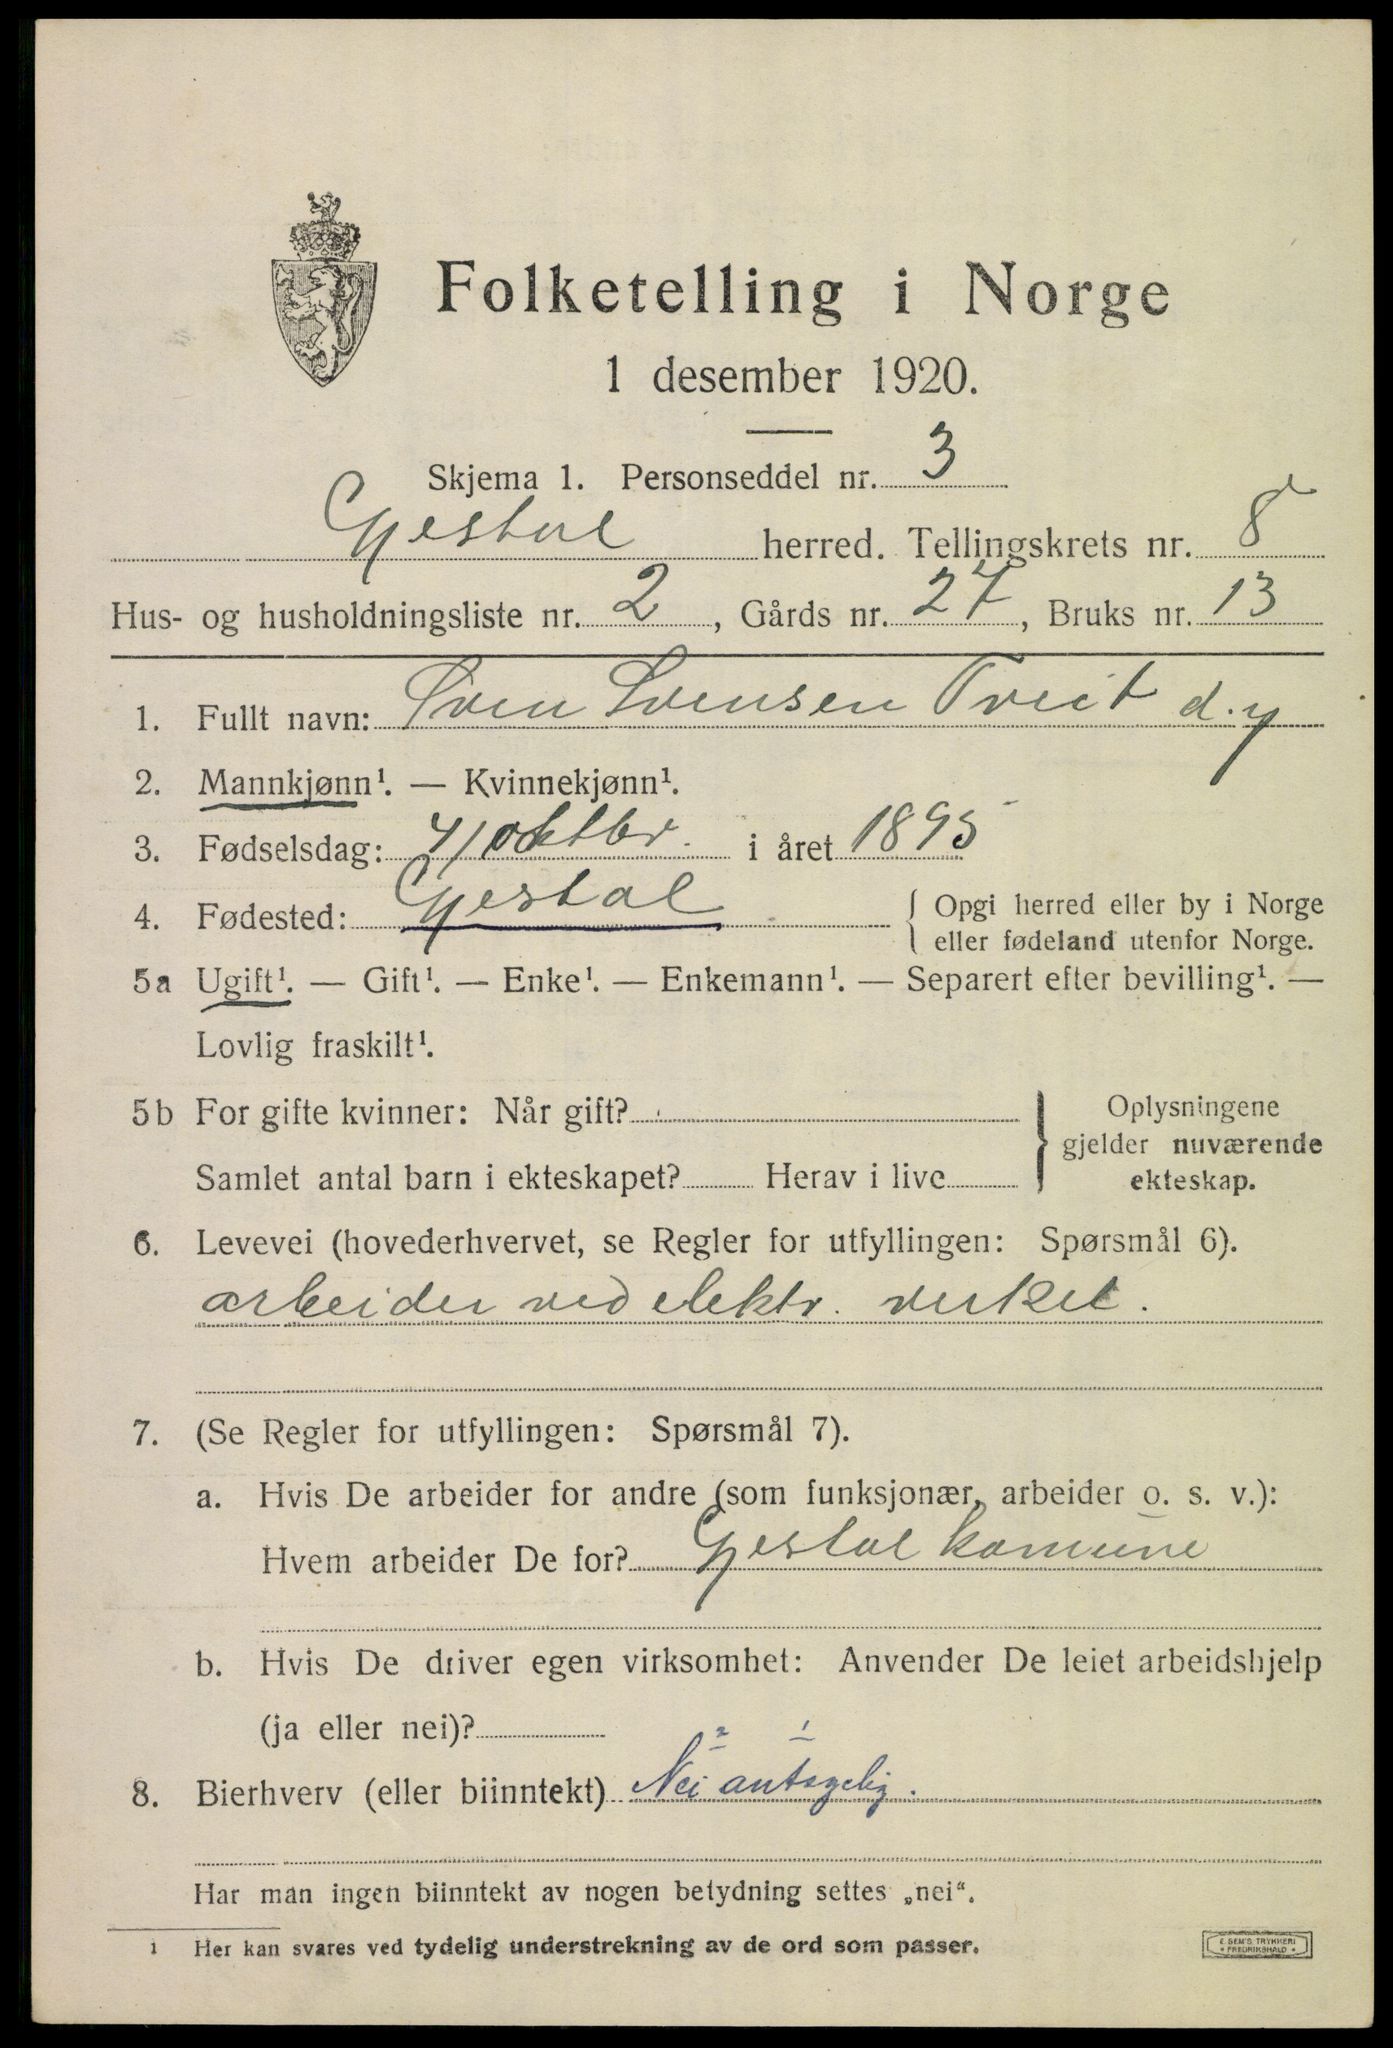 Folketelling i Norge
1 desember 1920.
Skjema 1. Personseddel nr. 3
Gjestal herred. Tellingskrets nr. 8
Hus- og husholdningsliste nr. 2, Gårds nr. 27, Bruks nr. 13
1. Fullt navn: Sven Svensen Tveit d.y
2. Mannkjønn¹. — Kvinnekjønn¹.
3. Fødselsdag: 4/oktbr. i året 1895
4. Fødested: Gjestal { Opgi herred eller by i Norge
eller fødeland utenfor Norge.
5a Ugift¹. — Gift¹. — Enke¹. — Enkemann¹. — Separert efter bevilling¹. —
Lovlig fraskilt¹.
5b For gifte kvinner: Når gift? } Oplysningene
gjelder nuværende
Samlet antal barn i ekteskapet? Herav i live ekteskap.
6. Levevei (hovederhvervet, se Regler for utfyllingen: Spørsmål 6).
arbeider ved elektr. verket.
7. (Se Regler for utfyllingen: Spørsmål 7).
a. Hvis De arbeider for andre (som funksjonær, arbeider o. s. v.):
Hvem arbeider De for? Gjestal komune
b. Hvis De driver egen virksomhet: Anvender De leiet arbeidshjelp
(ja eller nei)?
2 1
8. Bierhverv (eller biinntekt) Nei antagelig.
Har man ingen biinntekt av nogen betydning settes „nei“.
1 Her kan svares ved tydelig understrekning av de ord som passer.
E. SEM'S TRYKKERI
• FREDRIKSHALD •